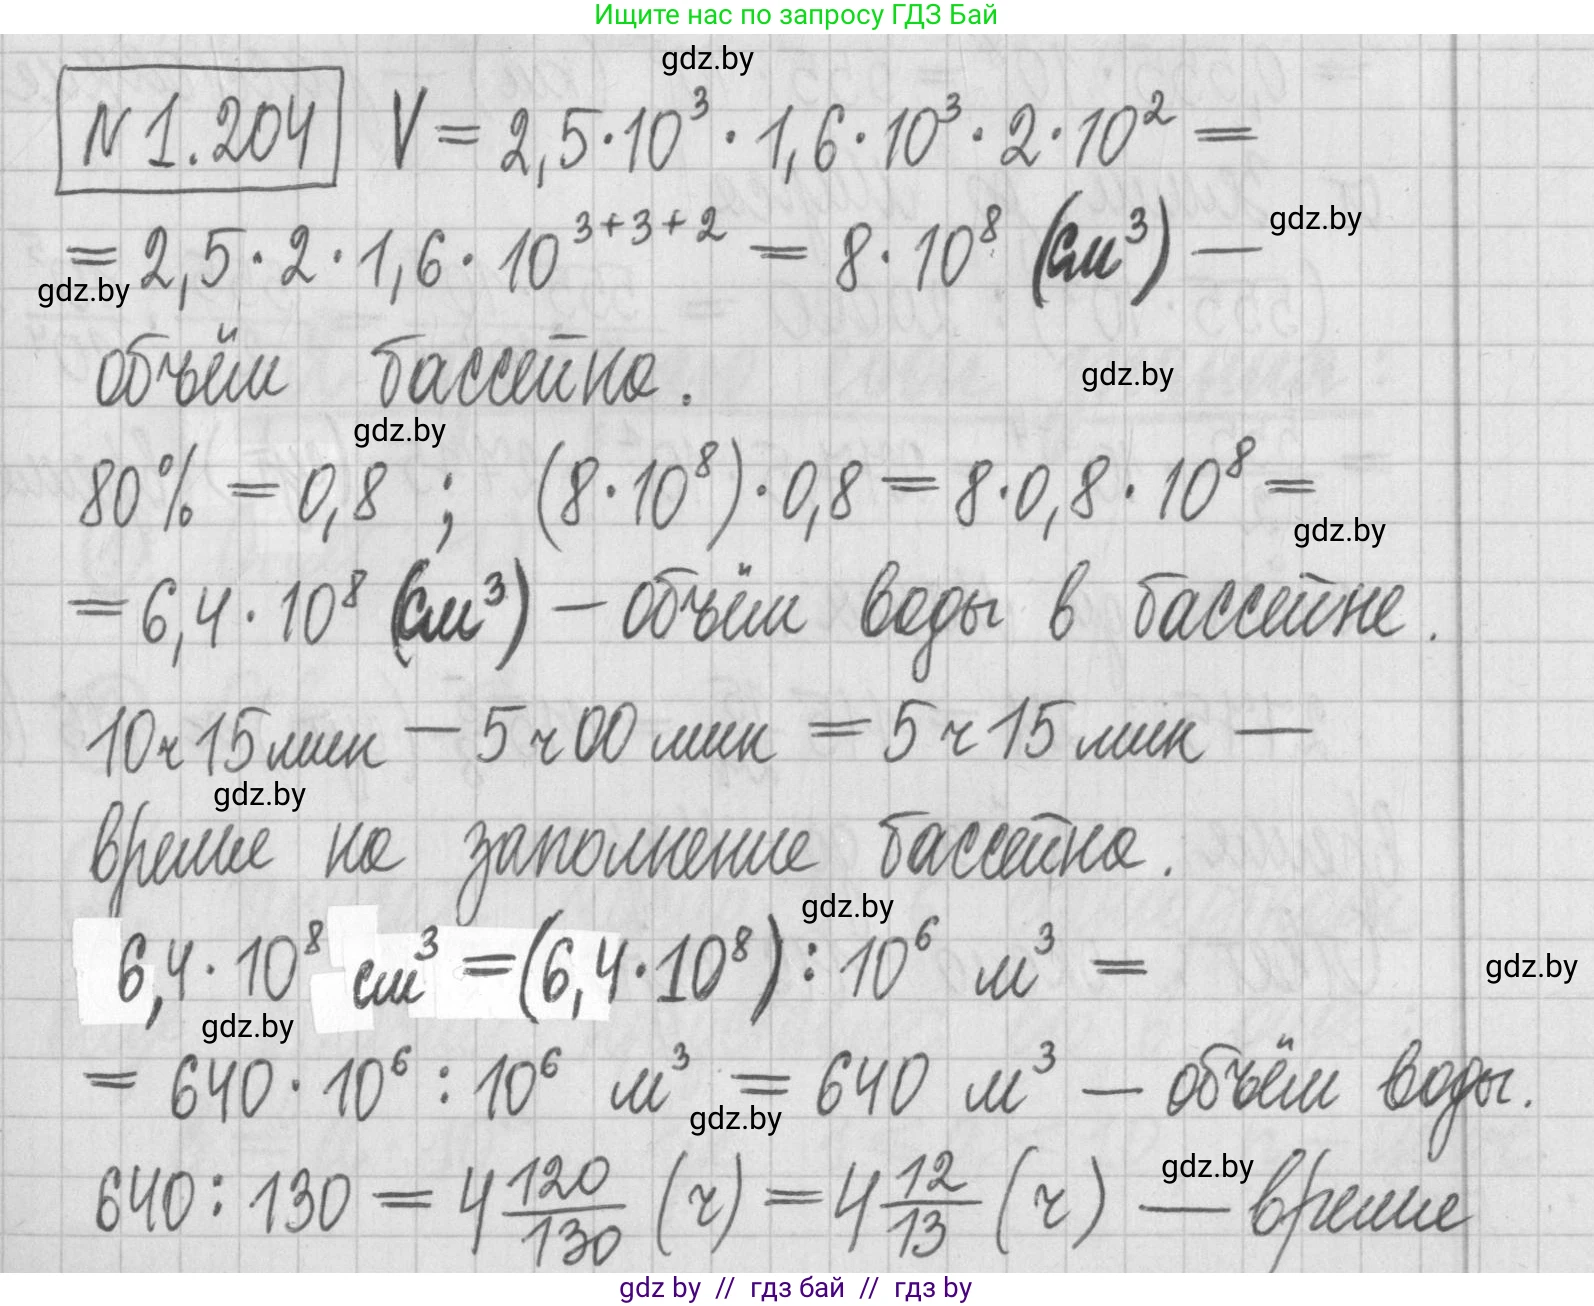 Ищите нас по запросу ГДЗ Бай
gdz.by
N 1.204 V = 2,5·10³ · 1,6·10³ · 2·10² =
gdz.by
= 2,5 · 2 · 1,6 · 10³⁺³⁺² = 8·10⁸ (см³) —
gdz.by
объём бассейна.
gdz.by
gdz.by
80% = 0,8 ; (8·10⁸)·0,8 = 8·0,8·10⁸ =
gdz.by
= 6,4·10⁸ (см³) — объём воды в бассейне.
10ч 15мин — 5ч 00 мин = 5ч 15 мин —
gdz.by
время на заполнение бассейна.
gdz.by
6,4·10⁸ см³ = (6,4·10⁸) : 10⁶ м³ =
gdz.by
gdz.by
= 640·10⁶ : 10⁶ м³ = 640 м³ — объём воды.
gdz.by
gdz.by
640 : 130 = 4 120/130 (ч) = 4 12/13 (ч) — время
gdz by // гдз бай // гдз by